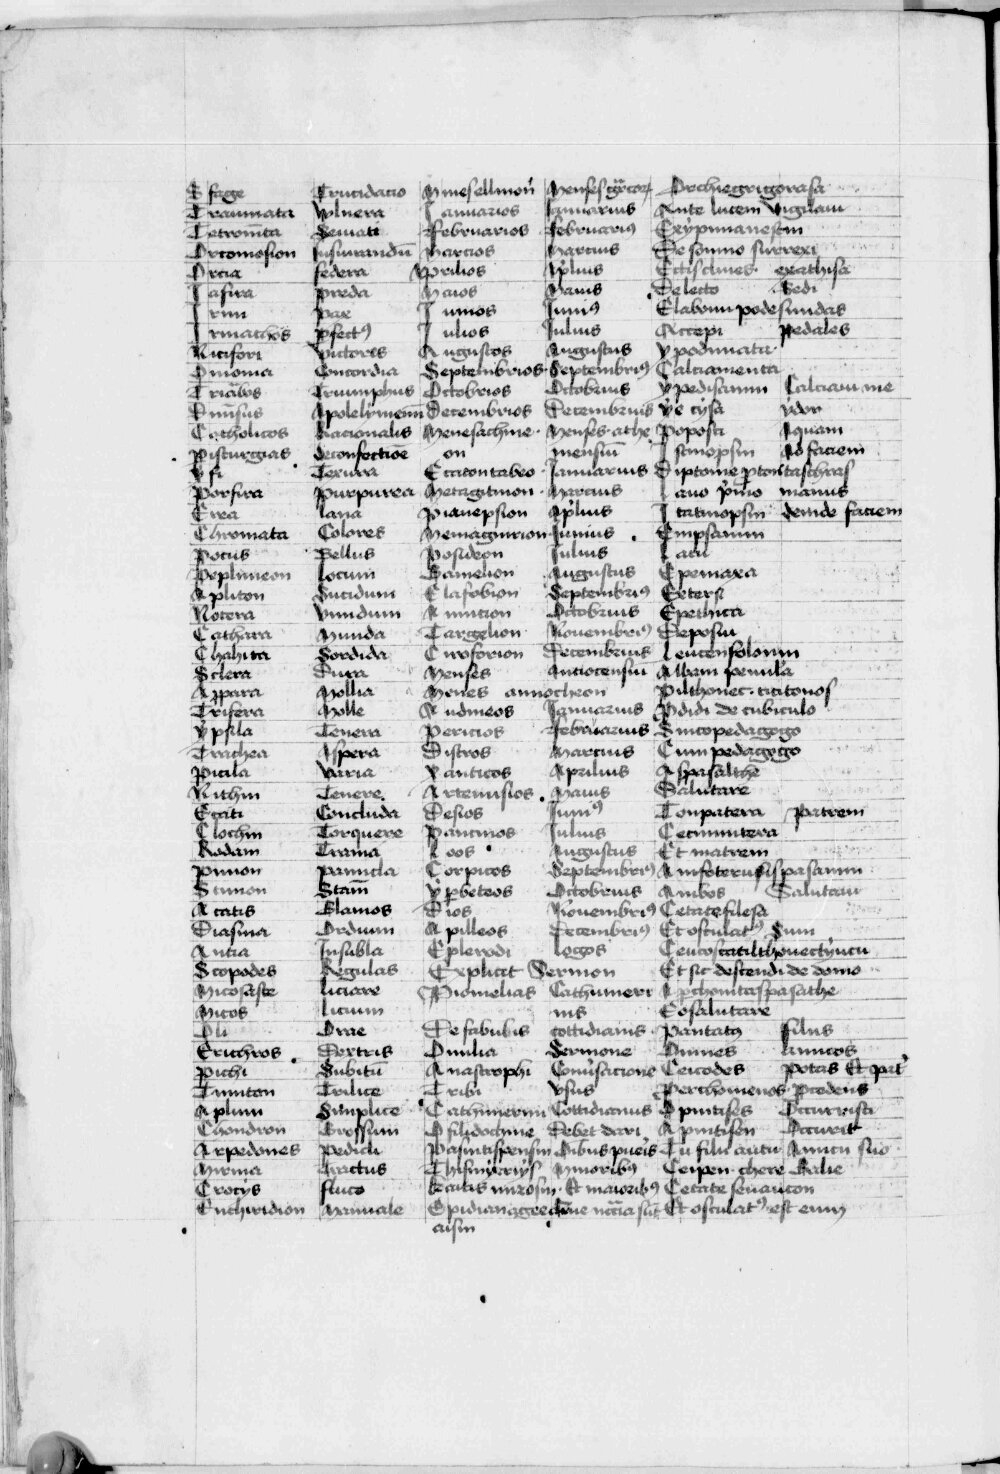 E fage Trucidacio Mineselimon Menses grecor Orchiegrigorasa
Traumata Vulnera Ianuarios Ianuarius Ante lucem vigilaui
Tetromta Deuicti Februarios Februarius Exypninanestin
Orcomosion Iusiurandum Marcios Marcius De somno surrexi
Orcia federa Aprilios Aplius Ectisclines exathisa
Iafira preda Maios Maius De lecto Sedi
Irini pax Iunios Iunius Elabonipodesindas
Irmachos pfectus Iulios Iulius Accepi pedales
Nicifori Victores Augustos Augustus Ypodimata
Omonia Concordia Septembrios Septembrius Calciamenta
Triabos Triumphus Octobrios Octobrius Ypedisamin Calciaui me
Dinisus Apolelimenn Decembrios Decembrius Ye tysa ydor
Catholicos Racionalis Menesachine Menses athe Poposci Aquam
Pisturgias deconfectioe on niensium Isinopsin Ad faciem
Yfi Texura Ecatontabeo Ianuarius Diptome ptontaschras
Porfira Purpurea Metagitnion Marcius Lauo primo manus
Erea lana Pianepsion Aplius Itatinopsin deinde faciem
Chromata Colores Memagnirion Iunius Empsamin
Pocus Vellus Posideon Iulius Laui
Peplimeon locum Gamelion Augustus Epemaxa
Apliton Sucidum Elafobion Septembrius Extersi
Notera vuidum Amution Octobrius Epethica
Cathara Munda Targelion Nouembrius Deposui
Chahita Sordida Ciroforion Decembrius Leucenfolonin
Sclera Dura Menses Antiocensium Albam penula
Appara Mollia Menes anniocheon Pilthonec ticitonos
Trifera Molle Audineos Ianuarius Pdidi de cubiculo
Ypsila Tenera Pericios Februarius Sincopedagogo
Trachea Aspera Distros Marcius Cum pedagogo
Picila Varia Xanticos Aprilius Aspasalthe
Nithin Tenere Artemisios Maius Salutare
Egati Concluda Desios Iunius Tonpatera Patrem
Clochin Torquere Panemos Iulius Cetinmitera
Rodam Trama Loos Augustus Et matrem
Pinion panucla Corpieos Septembrius Amfoterusispasamin
Stimon Stam Yperbeteos Octobrius Ambos Salutaui
Acatis Elamos Dios Nouembrius Cetatefilesa
Diasma Ordium Apilleos Decembrius Et osculatus Sum
Antia Insubla Eplerodi logos Ceucoscatilthouectyucu
Scopodes Regulas Explicit Sermon Et sic descendi de domo
Micosaste liciare Piomelias Cathimeri Aprchonitaspasathe
Micos licium nis Eosalutare
Oli Orae De fabulis cottidianis Pantatus filus
Erichros Dextris Omilia Sermone Omnes amicos
Pichi Subitu Anastrophi Conuersacione Ceicodes Potas Et pat
Timiton Trilice Tribi vsus Perchomenos Pcedens
Aplun Simplice Cathimerini Cottidianus Opintises Occurristi
Chondron Grossum Ofilidochine Debet dari Apintisen Occurit
Arpedones pedicli Pasintispensin Oibus pueis Tu filu autu Amicu suo
Mirma Tractus Thismycrys Minoribus Ceipen chere Vale
Crocys fluco Kaitis mizosin Et maioribus Cetate seuaucon
Enchiridion Manuale Epidianagee Et osculatus est eum
cuisin